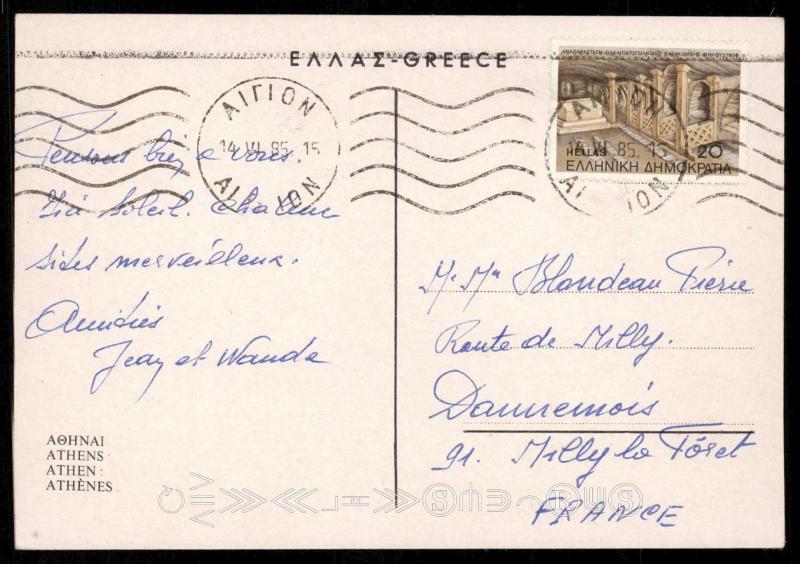 ΕΛΛΑΣ-GREECE
ΑΙΓΙΟΝ
14 VI 85.15
ΑΙΓΙΟΝ
ΑΙΓΙΟΝ
14 VI 85.15
ΑΙΓΙΟΝ
HELLAS 20
ΕΛΛΗΝΙΚΗ ΔΗΜΟΚΡΑΤΙΑ
Pensons bien a vous.
Ici Soleil. Chaleur
sites merveilleux.
Amitiés
Jean et Wanda
M. Mm Blondeau Pierre
Route de Milly.
Dannemois
91. Milly la Fôret
FRANCE
ΑΘΗΝΑΙ
ATHENS
ATHEN
ATHÈNES